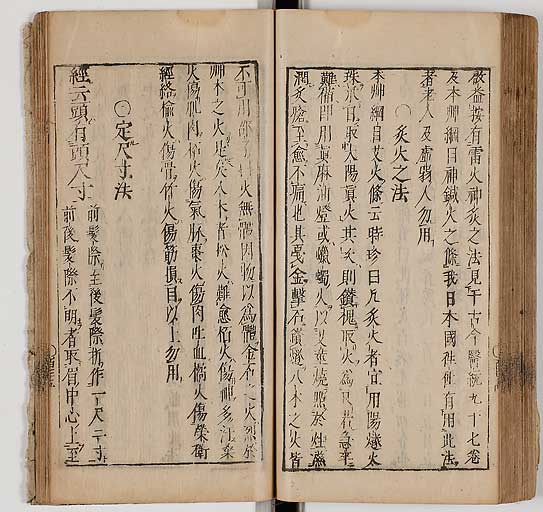 啟益按有雷火神灸之法見于古今醫統九十七卷
及本艸綱目神鍼火之條我日本國徃徃有用此法
者老人及虛弱人勿用
○灸火之法
本艸綱目艾火條云時珍曰凡灸火者宜用陽燧火
珠承日取太陽眞火其次則鑽槐取火爲良若急卒
難備即用眞麻油燈或蠟燭火以艾莖燒點於炷滋
潤灸瘡至愈不痛也其戛金擊石鑽燧八木之火皆
不可用邵子曰火無體因物以爲體金石之火烈於
艸木之火是矣八木者松火難愈柏火傷神多汗桑
火傷肌肉柘火傷氣脉棗火傷肉吐血橘火傷榮衛
經絡榆火傷骨竹火傷筋損目以上勿用
○定尺寸法
經云頭有頭尺寸
前髮際至後髮際折作一尺二寸
前後髮際不明者取眉中心上至